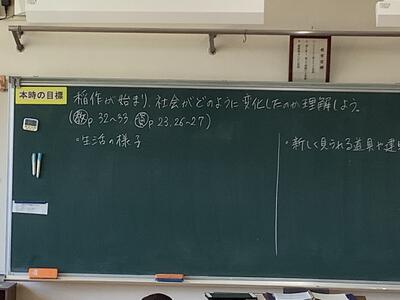 本時の目標
稲作が始まり、社会がどのように変化したのか理解しよう。
p 32~33 p 23, 26~27)
・生活の様子
・新しく見られる道具や建